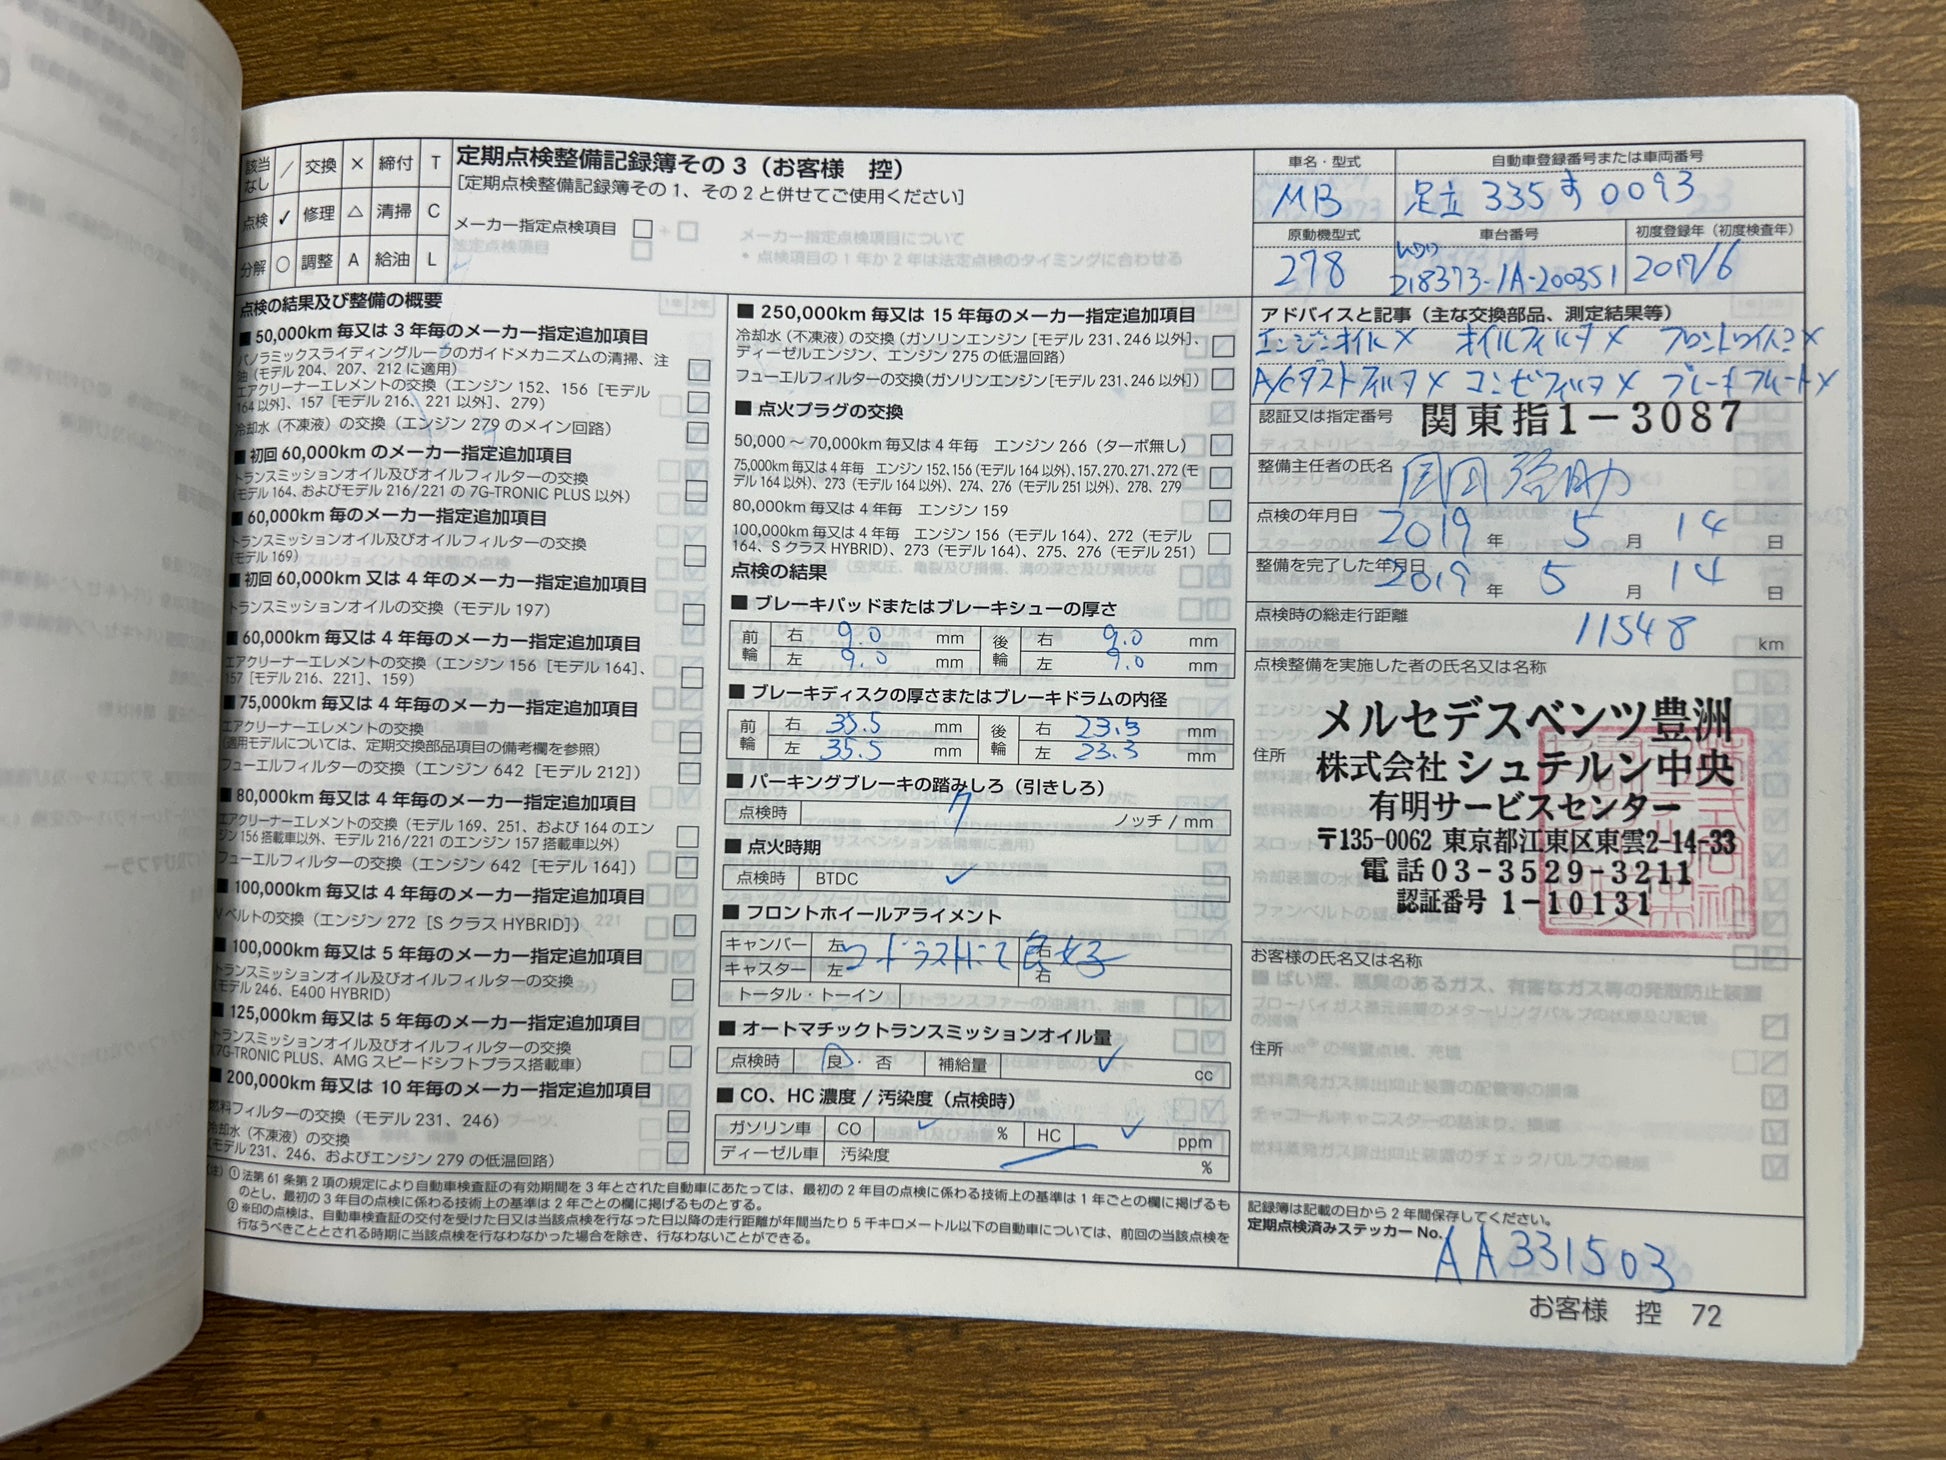 該当なし ／ 交換 × 締付 T
点検 ✓ 修理 △ 清掃 C
分解 ○ 調整 A 給油 L
定期点検整備記録簿その3（お客様 控）
［定期点検整備記録簿その1、その2と併せてご使用ください］
メーカー指定点検項目 □
点検の結果及び整備の概要
■ 50,000km 毎又は 3 年毎のメーカー指定追加項目
パノラミックスライディングルーフのガイドメカニズムの清掃、注油（モデル 204、207、212 に適用）
エアクリーナーエレメントの交換（エンジン 152、156［モデル 164 以外］、157［モデル 216、221 以外］、279）
冷却水（不凍液）の交換（エンジン 279 のメイン回路）
■ 初回 60,000km のメーカー指定追加項目
トランスミッションオイル及びオイルフィルターの交換
（モデル 164、およびモデル 216/221 の 7G-TRONIC PLUS 以外）
■ 60,000km 毎のメーカー指定追加項目
トランスミッションオイル及びオイルフィルターの交換
（モデル 169）
■ 初回 60,000km 又は 4 年毎のメーカー指定追加項目
トランスミッションオイルの交換（モデル 197）
■ 60,000km 毎又は 4 年毎のメーカー指定追加項目
エアクリーナーエレメントの交換（エンジン 156［モデル 164］、
157［モデル 216、221］、159）
■ 75,000km 毎又は 4 年毎のメーカー指定追加項目
エアクリーナーエレメントの交換
（適用モデルについては、定期交換部品項目の備考欄を参照）
フューエルフィルターの交換（エンジン 642［モデル 212］）
■ 80,000km 毎又は 4 年毎のメーカー指定追加項目
エアクリーナーエレメントの交換（モデル 169、251、および 164 のエンジン 156 搭載車以外、モデル 216/221 のエンジン 157 搭載車以外）
フューエルフィルターの交換（エンジン 642［モデル 164］）
■ 100,000km 毎又は 4 年毎のメーカー指定追加項目
Vベルトの交換（エンジン 272［S クラス HYBRID］）
■ 100,000km 毎又は 5 年毎のメーカー指定追加項目
トランスミッションオイル及びオイルフィルターの交換
（モデル 246、E400 HYBRID）
■ 125,000km 毎又は 5 年毎のメーカー指定追加項目
トランスミッションオイル及びオイルフィルターの交換
（7G-TRONIC PLUS、AMG スピードシフトプラス搭載車）
■ 200,000km 毎又は 10 年毎のメーカー指定追加項目
燃料フィルターの交換（モデル 231、246）
冷却水（不凍液）の交換
（モデル 231、246、およびエンジン 279 の低温回路）
■ 250,000km 毎又は 15 年毎のメーカー指定追加項目
冷却水（不凍液）の交換（ガソリンエンジン［モデル 231、246 以外］、
ディーゼルエンジン、エンジン 275 の低温回路）
フューエルフィルターの交換（ガソリンエンジン［モデル 231、246 以外］）
■ 点火プラグの交換
50,000 ～ 70,000km 毎又は 4 年毎 エンジン 266（ターボ無し）
75,000km 毎又は 4 年毎 エンジン 152、156（モデル 164 以外）、157、270、271、272（モデル 164 以外）、273（モデル 164 以外）、274、276（モデル 251 以外）、278、279
80,000km 毎又は 4 年毎 エンジン 159
100,000km 毎又は 4 年毎 エンジン 156（モデル 164）、272（モデル
164、S クラス HYBRID）、273（モデル 164）、275、276（モデル 251）
点検の結果
■ ブレーキパッドまたはブレーキシューの厚さ
前輪 右 9.0 mm 後輪 右 9.0 mm
左 9.0 mm 左 9.0 mm
■ ブレーキディスクの厚さまたはブレーキドラムの内径
前輪 右 35.5 mm 後輪 右 23.3 mm
左 35.5 mm 左 23.3 mm
■ パーキングブレーキの踏みしろ（引きしろ）
点検時 7 ノッチ / mm
■ 点火時期
点検時 BTDC ✓
■ フロントホイールアライメント
キャンバー 左 右
ロードテストにて良好
キャスター 左 右
トータル・トーイン
■ オートマチックトランスミッションオイル量
点検時 良・否 補給量 ✓ cc
■ CO、HC 濃度 / 汚染度（点検時）
ガソリン車 CO ✓ % HC ✓ ppm
ディーゼル車 汚染度 %
（注）① 法第 61 条第 2 項の規定により自動車検査証の有効期間を 3 年とされた自動車にあたっては、最初の 2 年目の点検に係わる技術上の基準は 1 年ごとの欄に掲げるも
のとし、最初の 3 年目の点検に係わる技術上の基準は 2 年ごとの欄に掲げるものとする。
② ※印の点検は、自動車検査証の交付を受けた日又は当該点検を行なった日以降の走行距離が年間当たり 5 千キロメートル以下の自動車については、前回の当該点検を
行なうべきこととされる時期に当該点検を行なわなかった場合を除き、行なわないことができる。
車名・型式 自動車登録番号または車両番号
MB 足立 335 す 0093
原動機型式 車台番号 初度登録年（初度検査年）
278 WDD 218373-1A-200351 2017/6
アドバイスと記事（主な交換部品、測定結果等）
エンジンオイル× オイルフィルタ× フロントワイパーゴム×
A/Cダストフィルタ× コンビフィルタ× ブレーキフルード×
認証又は指定番号 関東指1-3087
整備主任者の氏名
点検の年月日 2019 年 5 月 14 日
整備を完了した年月日 2019 年 5 月 14 日
点検時の総走行距離 11548 km
点検整備を実施した者の氏名又は名称
メルセデスベンツ豊洲
住所 株式会社 シュテルン中央
有明サービスセンター
〒135-0062 東京都江東区東雲2-14-33
電話 03-3529-3211
認証番号 1-10131
お客様の氏名又は名称
住所
記録簿は記載の日から 2 年間保存してください。
定期点検済みステッカー No. AA331503
お客様 控 72